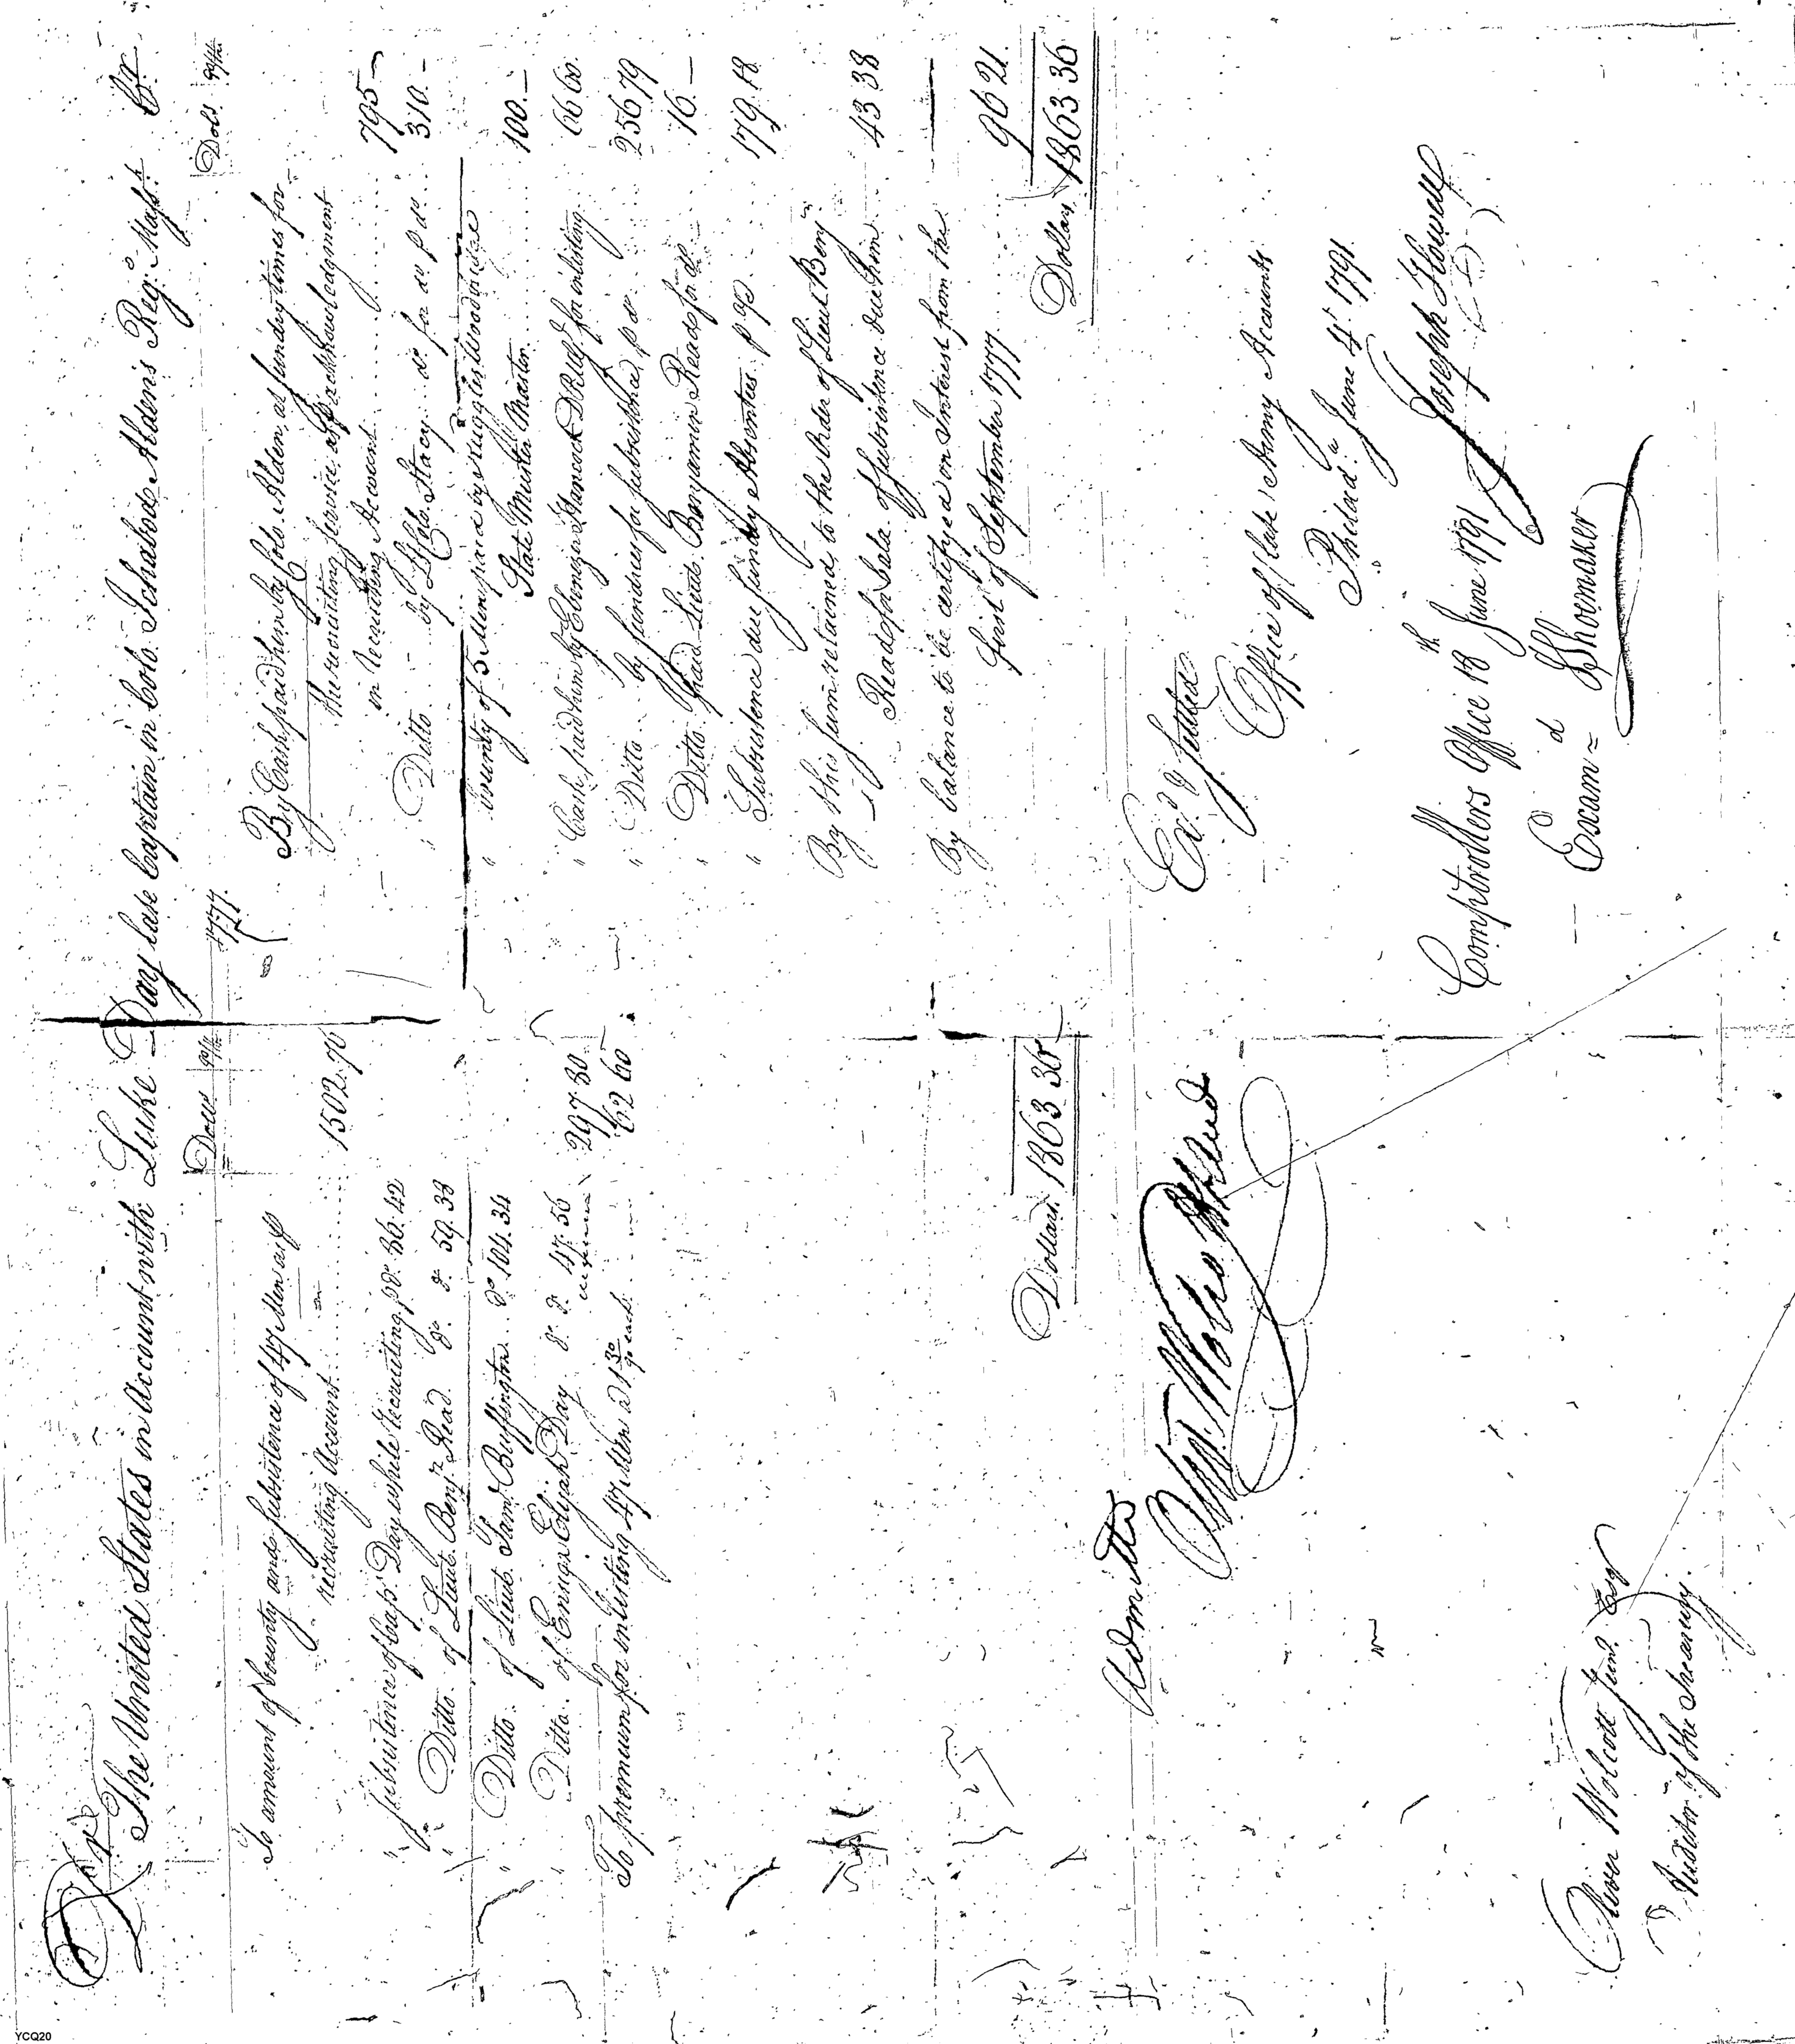 Dr The United States in Account with Luke Day late Captain in Colo. Ichabod Alden's Reg.t Mass.ts Cr.
Dolls 90/ths
To amount of bounty and subsistence of 47 Men as p
recruiting Account 1502.70
" subsistence of Cap.t Day while recruiting p do. 86.42
" Ditto of Lieut. Benj.n Read do. do. 59.38
" Ditto of Lieut. Sam.l Buffington do. 104.34
" Ditto of Ensign Elijah Day do. do. 47.56
297.80
To premium for inlisting 47 Men a 1 30/90 each 62 60
Dollars 1863 36
Admitted
Oliv. Wolcott Jun.r
Oliver Wolcott Jun.r Esqr
Auditor of the Treasury.
1777.
Dols. 90/ths
By Cash paid him by Colo. Alden, at sundry times for
the recruiting service, as p acknowledgment
in recruiting Account 795 –
" Ditto by Lt. Colo. Stacy do for do p do 310. –
" bounty of 5 Men paid by Ruggles Woodbridge
State Muster Master 100. –
" Cash paid him by Ebenezer Hancock D P M G.l for inlisting 66 60.
" Ditto by sundries for subsistence, p do 256 79
" Ditto paid Lieut. Benjamin Read for do. 16. –
" Subsistence due sundry Absentees p 179. 18
By this sum retained to the order of Lieut Benj.n
Read for bala. of subsistence due him 43 38
By balance to be certifyed on Interest from the
first of September 1777 96 21.
Dollars 1863 36
Ex.d & settled
Office of late Army Accounts
Philad.a June 4th 1791.
Joseph Howell
Comptrollers Office 18th June 1791
Exam.d Shoemaker
YCQ20